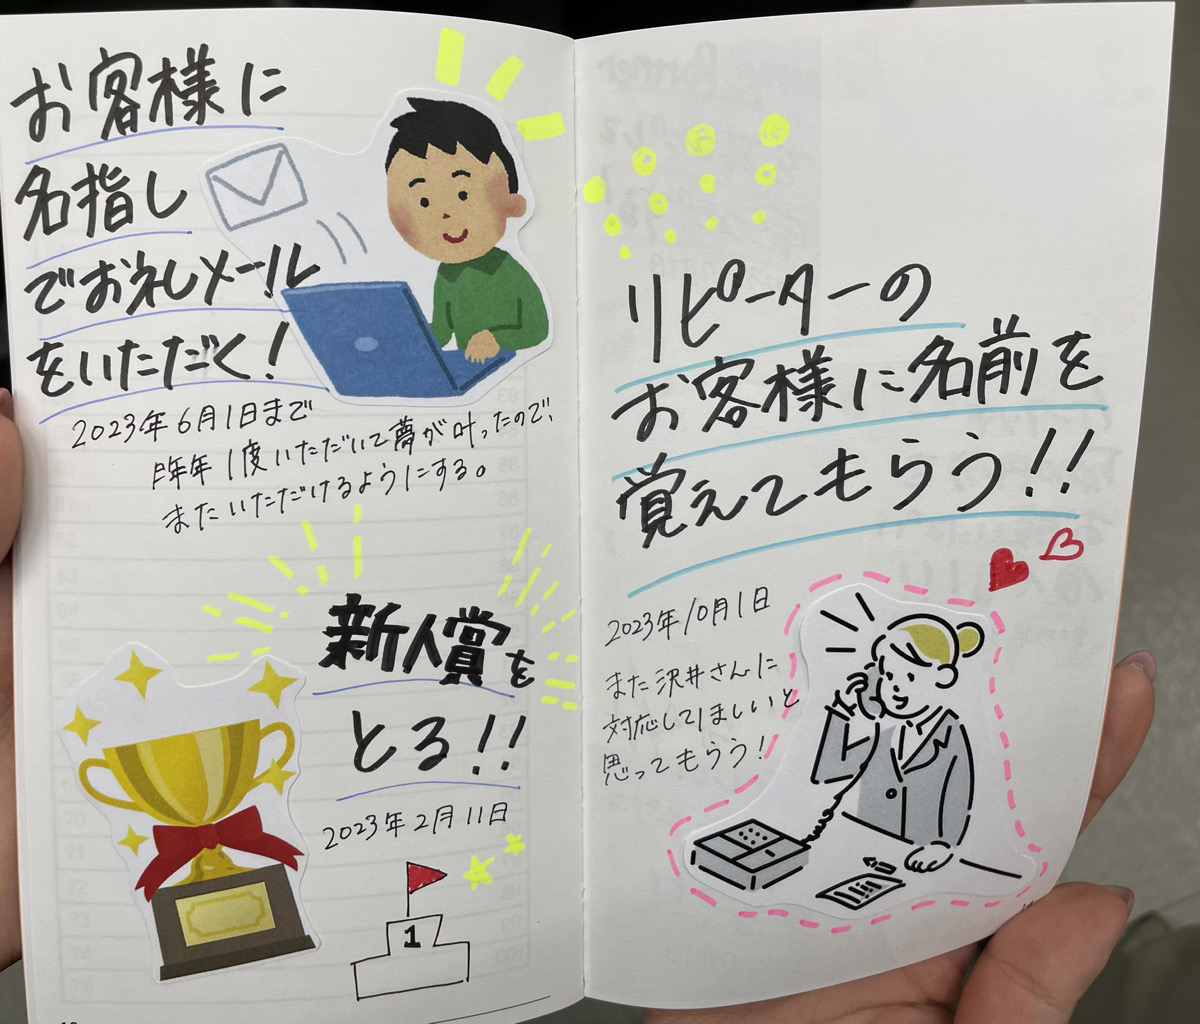 お客様に
名指し
でお礼メール
をいただく!
2023年6月1日まで
昨年1度いただいて夢が叶ったので、
またいただけるようにする。
新人賞を
とる!!
2023年2月11日
1
リピーターの
お客様に名前を
覚えてもらう!!
2023年10月1日
また沢井さんに
対応してほしいと
思ってもらう!